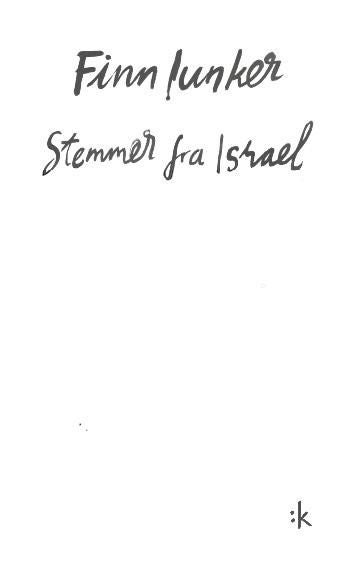 Finn Iunker
Stemmer fra Israel
:k